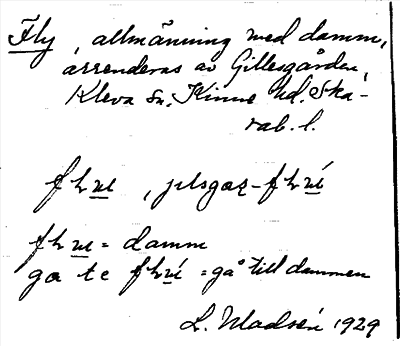 Fly, allmänning med damm,
arrenderas av Gillesgården,
Kleva sn. Kinne hd. Ska-
rab. l.
= damm
ga te = gå till dammen
L. Madsén 1929